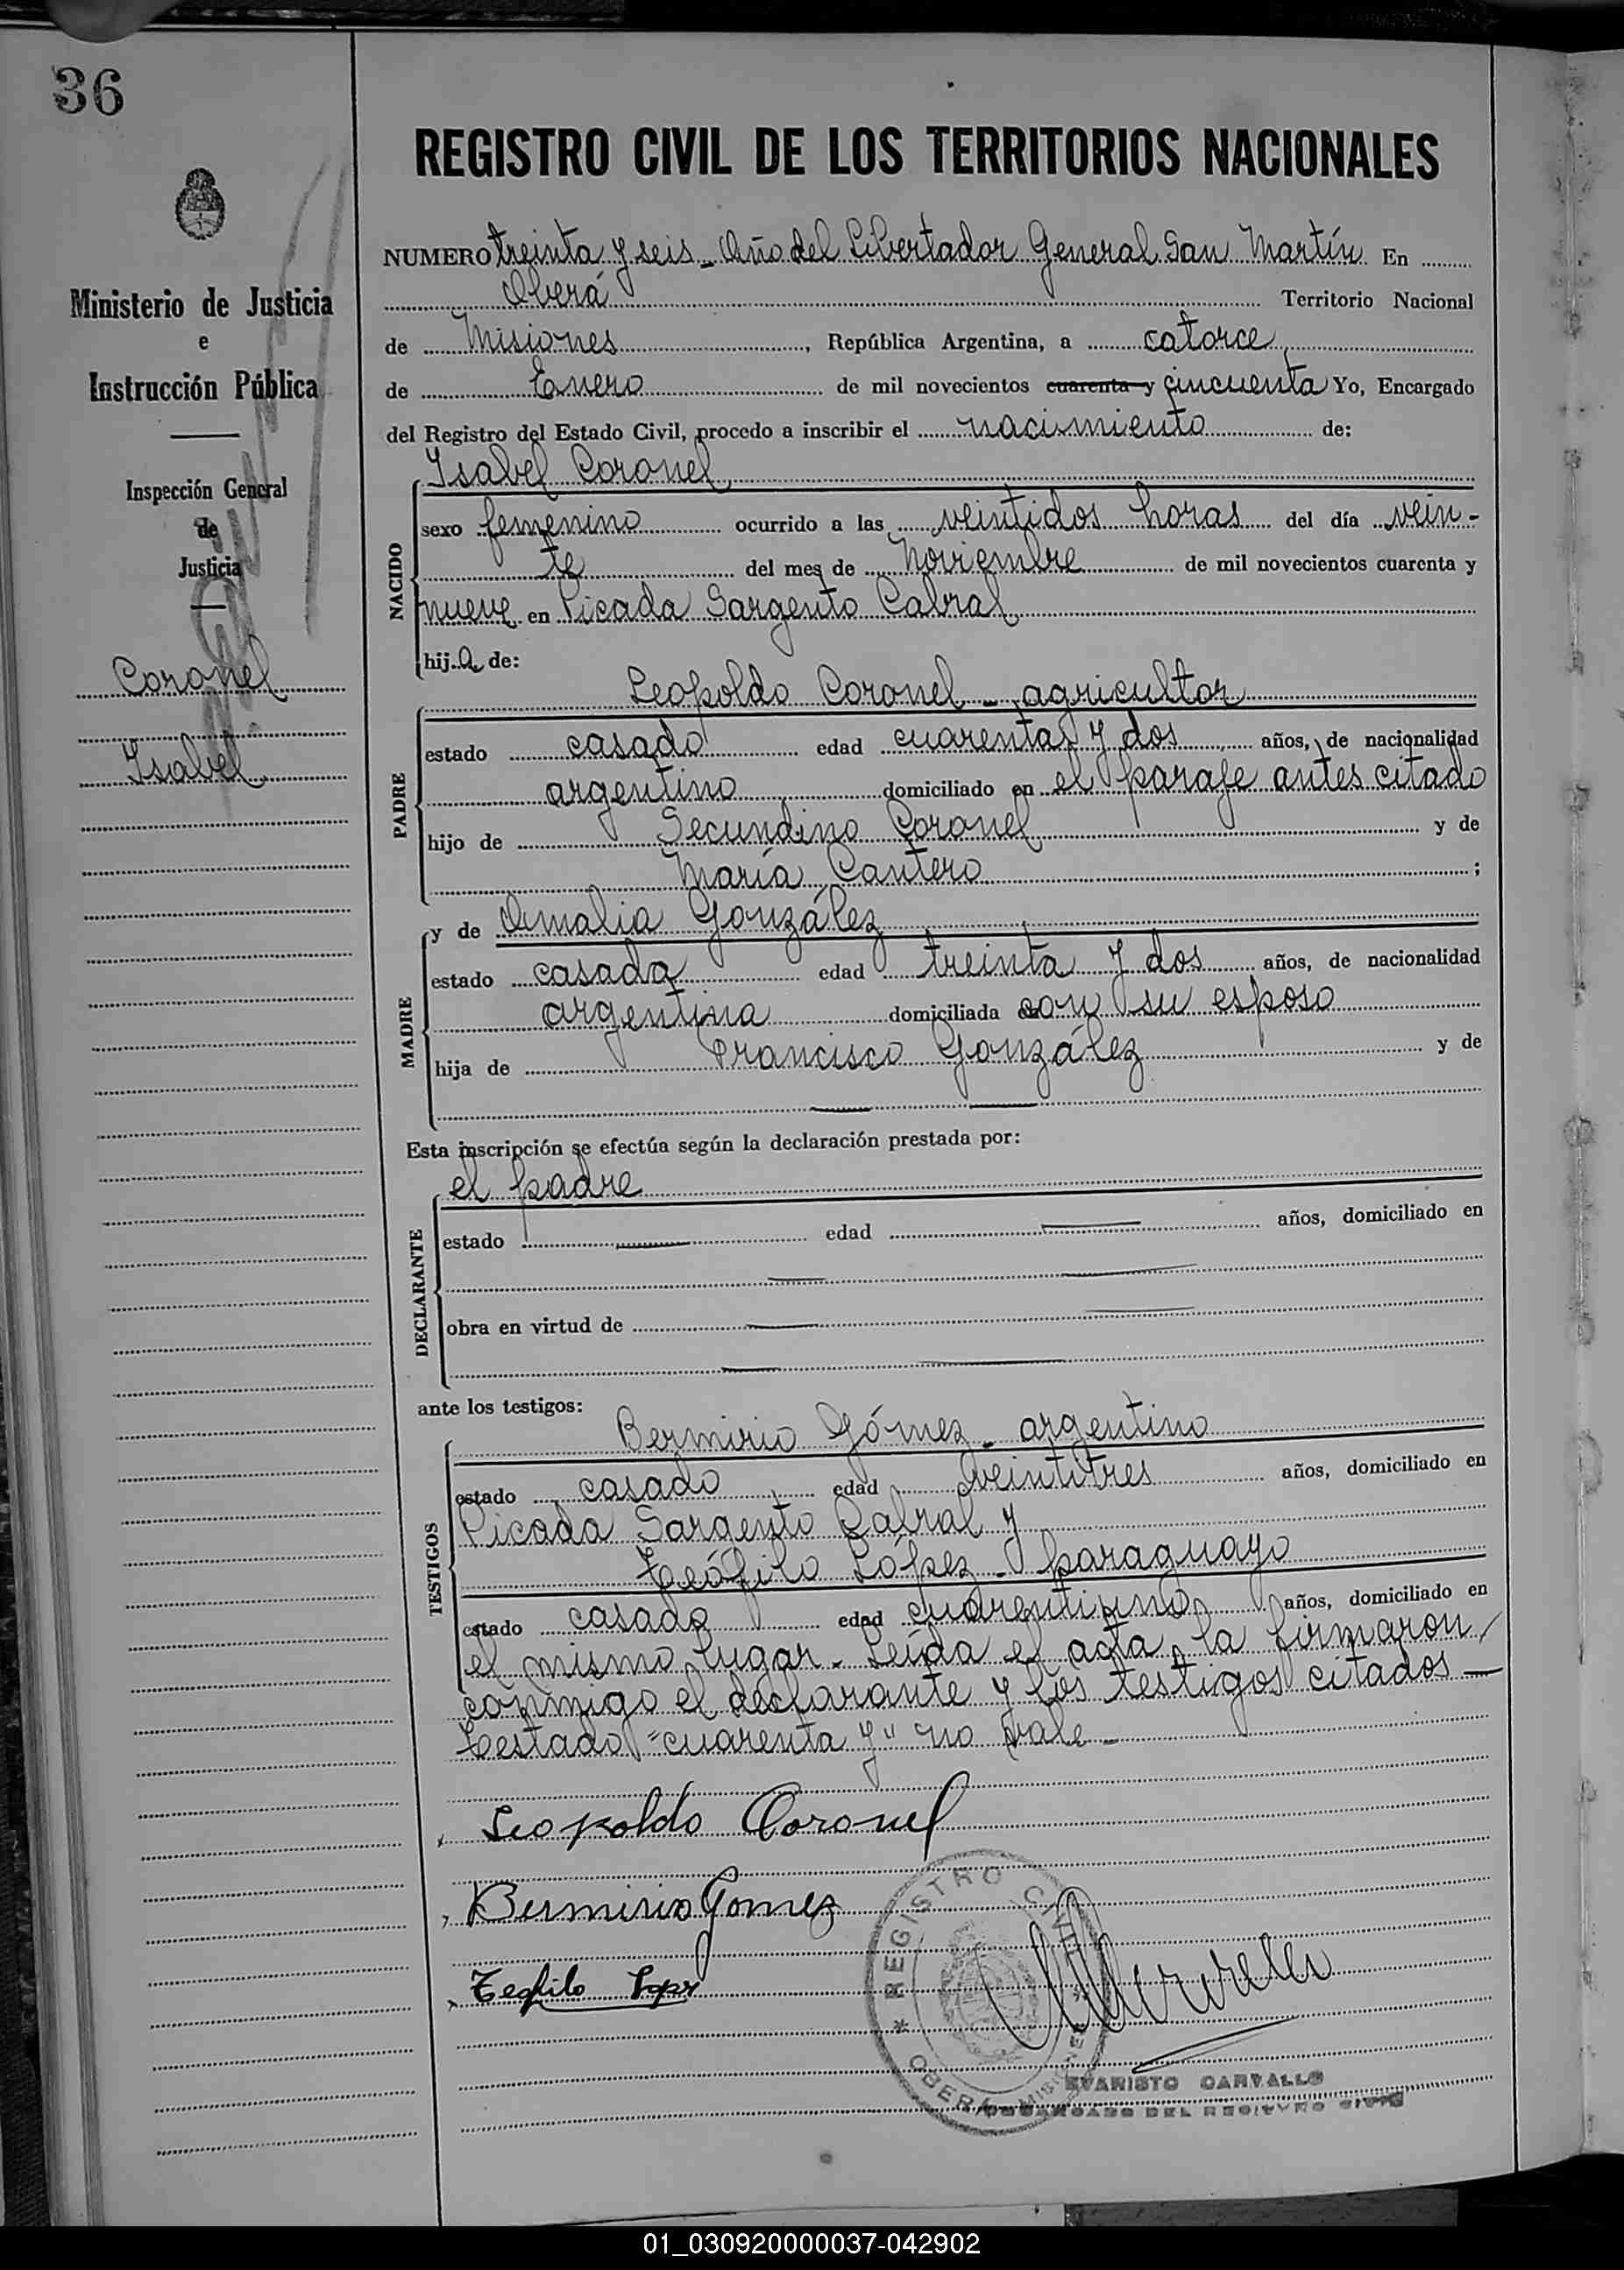 36
REGISTRO CIVIL DE LOS TERRITORIOS NACIONALES
Ministerio de Justicia
e
Instrucción Pública
Inspección General
de
Justicia
Coronel
Isabel
NUMERO treinta y seis - Año del Libertador General San Martín En
Oberá Territorio Nacional
de Misiones, República Argentina, a catorce
de Enero de mil novecientos cuarenta y cincuenta Yo, Encargado
del Registro del Estado Civil, procedo a inscribir el nacimiento de:
Isabel Coronel
NACIDO
sexo femenino ocurrido a las veintidos horas del día vein-
te del mes de Noviembre de mil novecientos cuarenta y
nueve en Picada Sargento Cabral
hij a de:
Leopoldo Coronel - agricultor
PADRE
estado casado edad cuarenta y dos años, de nacionalidad
argentino domiciliado en el paraje antes citado
hijo de Secundino Coronel y de
María Cantero ;
y de Amalia González
MADRE
estado casada edad treinta y dos años, de nacionalidad
argentina domiciliada con su esposo
hija de Francisco González y de
Esta inscripción se efectúa según la declaración prestada por:
el padre
DECLARANTE
estado edad años, domiciliado en
obra en virtud de
ante los testigos:
Bermirio Gómez - argentino
TESTIGOS
estado casado edad veintitres años, domiciliado en
Picada Sargento Cabral y
Teófilo López - paraguayo
estado casado edad cuarentiuno años, domiciliado en
el mismo lugar - Leída el acta, la firmaron
conmigo el declarante y los testigos citados —
Testado "cuarenta y" no vale -
Leopoldo Coronel
Bermirio Gomez
Teofilo Lopez
REGISTRO CIVIL
OBERÁ MISIONES
EVARISTO CARVALLO
ENCARGADO DEL REGISTRO CIVIL
01_030920000037-042902